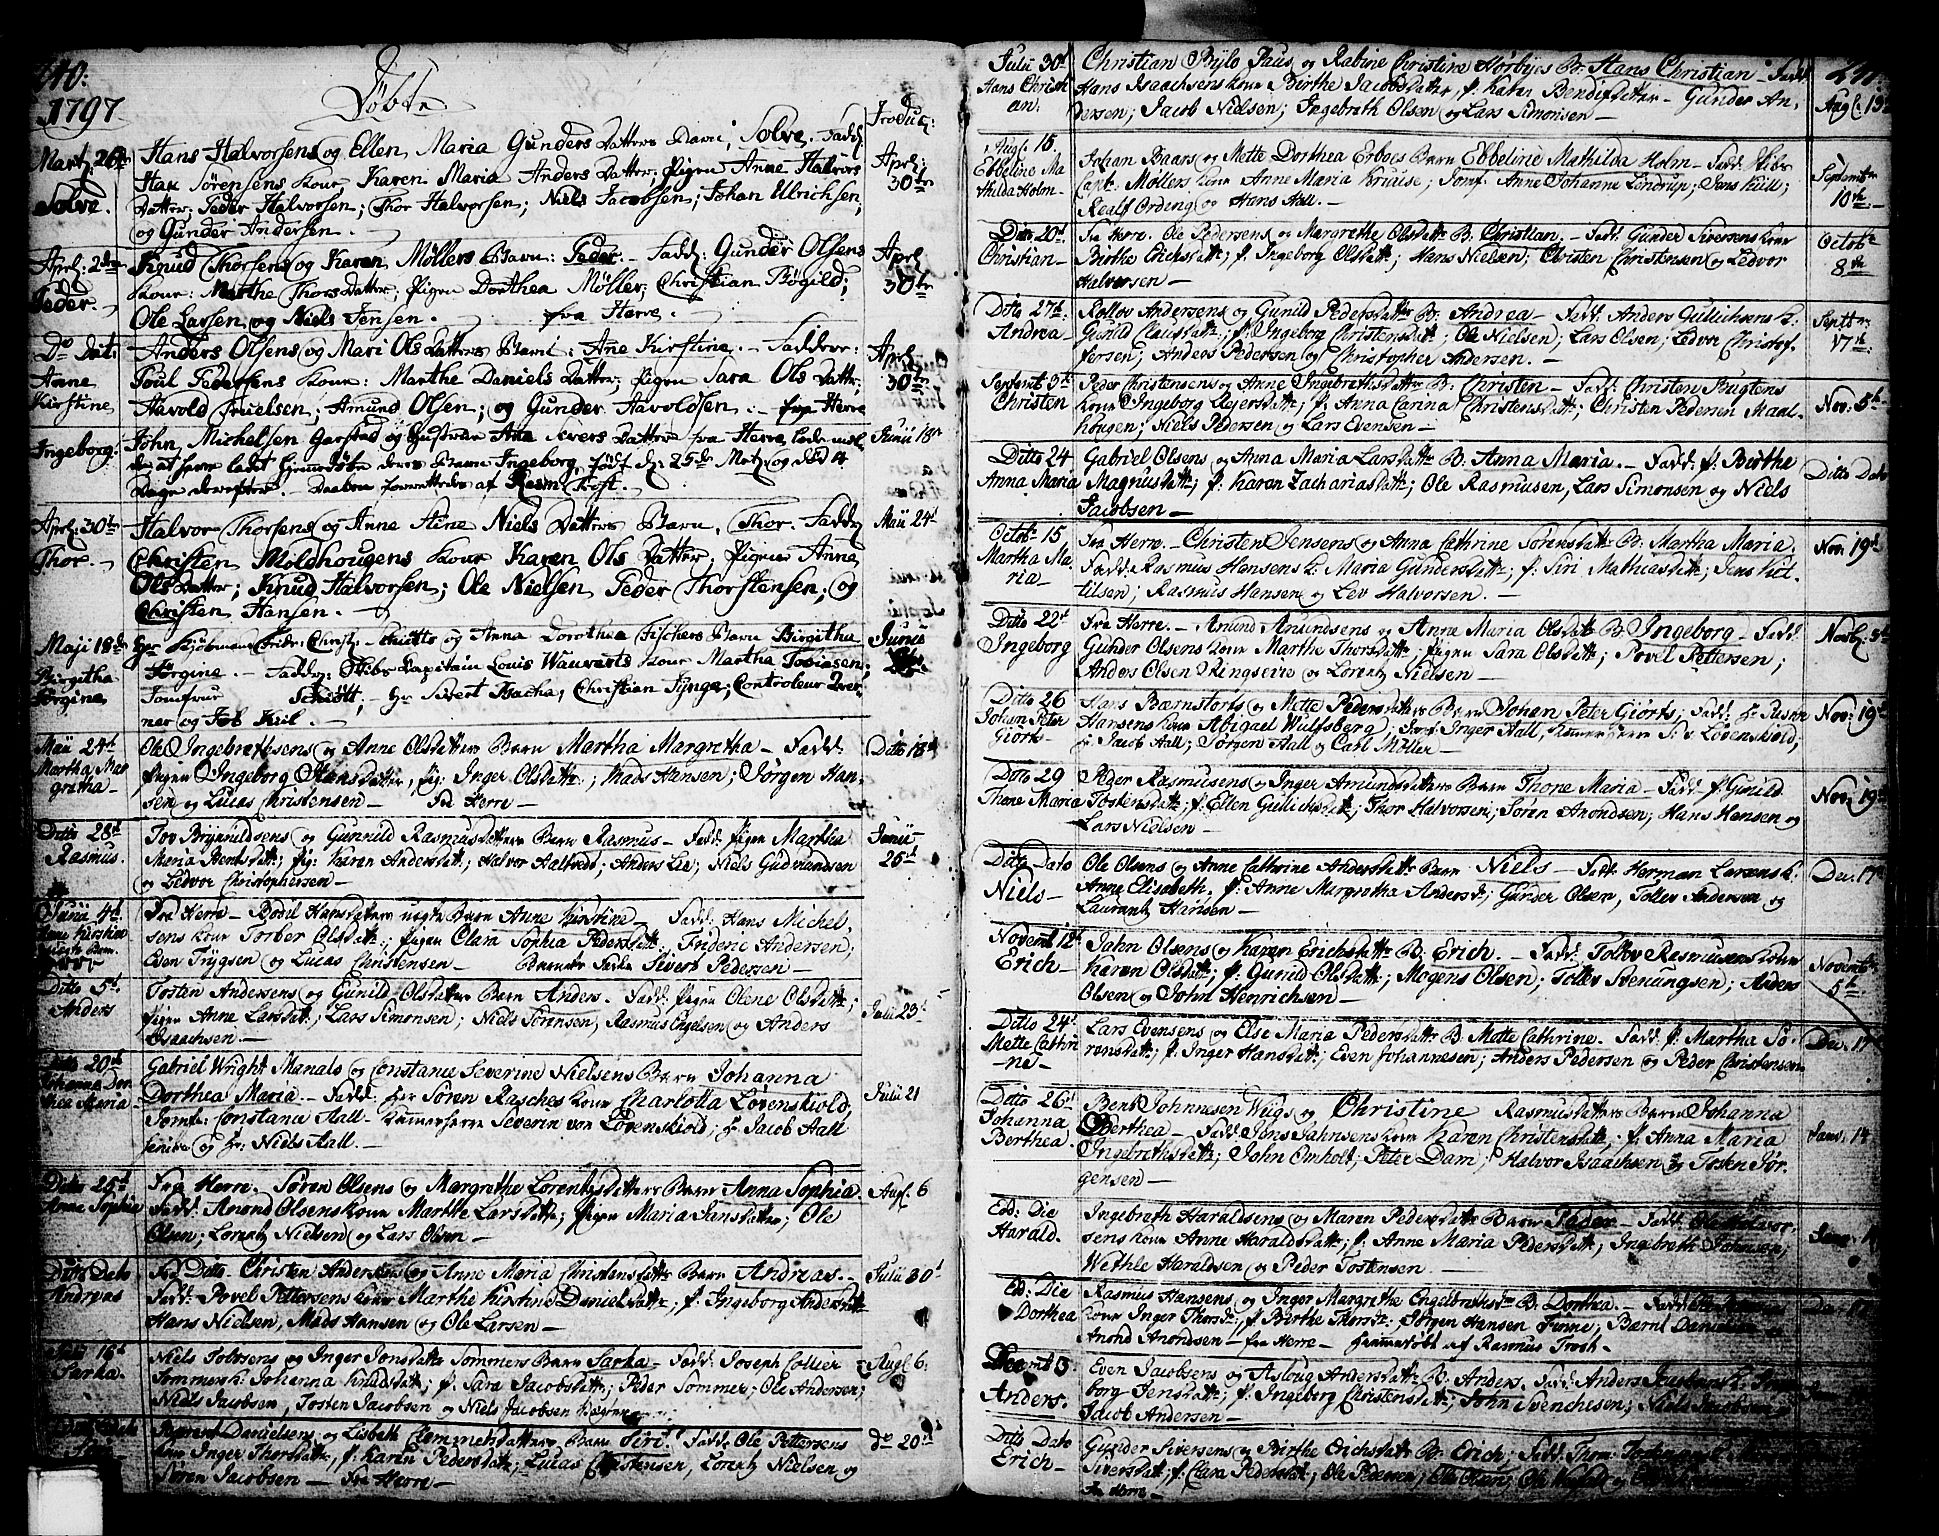 240:
1797
Døbte
Introduc:
Mart: 26de
Sølve.
Hans Halvorsens og Ellen Maria Gunders Datters Barn, Sølve. Fadd:
Hak Sørensens Kone, Karen Maria Anders Datter; Pigen Anne Halvors
Datter; Peder Halvorsen; Thor Halvorsen; Niels Jacobsen; Johan Ellrichsen;
og Gunder Andersen.
Apr: 30te
Apr: 2den
Peder.
Knud Thorsens og Karen Möllers Barn: Peder. Fadd: Gunder Olsens
Kone: Marthe Thors Datter; Pigen Dorthea Möller; Christian Bögild;
Ole Larsen og Niels Jensen. fra Herre.
Apr: 30te
Do Dat:
Anne
Kirstine
Anders Olsens og Mari Ols Datters Barn: Ane Kirstine. Faddere:
Poul Pedersens Kone: Marthe Daniels Datter; Pigen Sara Ols Datter;
Harold Nielsen; Amund Olsen; og Gunder Haroldsen. fra Herre
Apr: 30te
Ingeborg:
John Michelsen Garstad og Hustrue Ana Sivers Datter fra Herre lode mel-
de at have ladet hjemmedøbe deres Barn Ingeborg, født d: 25de Martz og død 4
Dage derefter. Daaben forrettedes af Rasm: Trost.
Junii 18de
Apr: 30te
Thor.
Halvor Thorsens og Anne Stine Niels Datters Barn, Thor. Fadd:
Christen Moldhougens Kone Karen Ols Datter; Pigen Anne
Ols Datter; Knud Halvorsen; Ole Nielsen Peder Thorstensen; og
Christen Hansen.
Maii 24d
Maji 18de
Birgitha
Jørgine
Hr Kjøbmand Fridr: Christ: Schiøtts og Anna Dorothea Fischers Barn Birgitha
Jørgine. Fadd: Skibs Capitain Louis Wauvarts Kone Martha Tobiasen;
Jomfrue Schiött; Hr Sivert Bacha; Christian Jynge; Controleur Iver-
ner og Job Kiil.
Junii
Maii 24d
Martha Mar
gretha
Ole Ingebrethsens og Anne Olsdatters Barn Martha Margretha. Fadd:
Pigen Ingeborg Hansdatter, Pig: Inger Olsdattr; Mads Hansen; Jørgen Han-
sen og Lucas Christensen. Fra Herre
Ditto 18d
Ditto 28d
Rasmus.
Tov Brynildsens og Gunnild Rasmusdatters Barn Rasmus. Fadd: Pigen Martha
Maria Hendsdattr; Pig: Karen Andersdatt:; Halvor Halvrod; Anders Lie; Niels Gudmandsen
og Ledvor Christophersen
Junii
25d
Junii 4d
Anne Kirstine
Fra Herre. Bodil Hansdatters uægte Barn Anne Kirstine. Fadd: Hans Michel-
sens Kone Torber Olsdatt:; Pigen Clara Sophia Pedersdatt:; Frideric Andersen;
Even Trygsen og Lucas Christensen. Barnets Fader Sivert Pedersen
Ditto 5d
Anders
Tosten Andersens og Gunild Olsdatters Barn Anders. Fadd: Pigen Olene Olsdatt:;
Pigen Anne Larsdatt:; Lars Simonsen; Niels Sørensen, Rasmus Engelsen og Anders
Isaachsen
Julii 23d
Ditto 20d
Johanna Dor
thea Maria
Gabriel Wright Manals og Constance Severine Nielsens Barn Johanna
Dorthea Maria. Fadd: Hr Søren Rasches Kone Charlotta Løvenskiold;
Jomfr: Constance Aall. Kammerherre Severin von Løvenskiold; Hr Jacob Aall
senior og Hr: Niels Aall.
Julii 21
Ditto 25d
Anne Sophia
Fra Herre. Søren Olsens og Margrethe Lorentzdatters Barn Anna Sophia.
Fadd: Anond Olsens Kone Marthe Larsdatter; Pigen Maria Jansdatter; Ole
Olsen; Lorentz Nielsen og Lars Olsen
Aug: 6
Ditto Dato
Andreas
Fra Dito. Christen Andersens og Anne Maria Christensdatters Barn Andreas.
Fadd: Povel Pettersens Kone Marthe Kirstine Danielsdatter; P: Ingeborg Andersdatt:
Hans Nielsen, Mads Hansen og Ole Larsen
Julii 30d
Julii 16d
Sarha.
Niels Tobersens og Inger Jonsdatter Sommers Barn Sarha. Fadd: Joseph Collier
Sommers K: Johanna Knudsdatt:; P: Sara Jacobsdatt:; Peder Sommer; Ole Andersen;
Niels Jacobsen, Tosten Jacobsen og Niels Jacobsen
Aug: 6:
Ditto Dato
Siri
Bærent Danielsens og Lisbeth Clemmetsdatters Barn Siri. Fadd: Ole Pettersens
Kone Inger Thorsdatt:, P: Karen Pedersdatt:; Lucas Christensen, Lorentz Nielsen og
Søren Jacobsen. Fra Herre
do 20d
241
Julii 30d
Hans Christi
an.
Christian Bylo Paus og Rabine Christine Hørbyes B: Hans Christian. Fadd:
Hans Isaachsens Kone Birthe Jacobsdatter, P: Karen Bendixdatter. Gunder An-
dersen; Jacob Nielsen; Ingebreth Olsen og Lars Simonsen
Aug: 13
Aug: 15.
Ebbeline Ma
thilda Holm
Johan Baars og Mette Dorthea Erboes Barn Ebbeline Mathilda Holm. Fadd: Skibs
Capt: Möllers Kone Anne Maria Kruise; Jomf: Anne Johanne Lindrup; Jens Kiil;
Realf Ording og Hans Aall.
September
10de
Ditto 20d
Christian
Fra Herre. Ole Pedersens og Margrethe Olsdatt: B. Christian. Fadd: Gunder Siversens Kone
Birthe Erichsdatt:; P: Ingeborg Olsdatt:; Hans Nielsen; Christen Christensen og Ledvor
Halvorsen
Octobr
8de
Dito 27d:
Andrea
Rollov Andersens og Gunild Pedersdatter B: Andrea. Fadd: Anders Gullichsens K:
Gunild Clausdatt:; P: Ingeborg Christensdatt:; Ole Nielsen; Lars Olsen; Ledvor Christof-
fersen; Anders Pedersen og Christopher Andersen.
Septbr:
17d:
Septembr 3d
Christen
Peder Christensens og Anne Ingebrethsdatter B: Christen. Fadd: Christen Bugtens
Kone Ingeborg Rejersdatt:; P: Anna Carina Christensdatt:; Christen Pedersen Maal-
hougen; Niels Pedersen og Lars Evensen
Nov: 5d
Ditto 24
Anna Maria
Gabriel Olsens og Anna Maria Larsdatt: B: Anna Maria. Fadd: P: Birthe
Magnusdatt:; P: Karen Zachariasdatt:; Ole Rasmusen, Lars Simonsen og Niels
Jacobsen
Ditto Dato
Octobr 15
Martha Ma
ria
Fra Herre. Christen Jensens og Anna Cathrine Sørensdatt: B: Martha Maria.
Fadd: Rasmus Hansens K: Maria Gundersdatt:; P: Siri Mathiasdatt:; Jens Kit-
tilsen; Rasmus Hansen og Lev Halvorsen.
Nov: 19d
Ditto 22d
Ingeborg
Fra Herre. Anund Anundsens og Anne Maria Olsdatt: B: Ingeborg. Fadd:
Gunder Olsens Kone Marthe Thorsdatt:; Pigen Sara Olsdatt:; Povel Pettersen;
Anders Olsen Ringseire og Lorentz Nielsen
Novbr: 5d
Ditto 26
Johan Peter
Giørts
Hans Bærnstorfs og Mette Pedersdatters Barn Johan Peter Giørts, Fadd: Hr
Hansens Kone Abigael Wulfsberg; Jomf: Inger Aall, Kammerherre S: v Løvenskiold;
Hr Jacob Aall; Jørgen Aall og Carl Möller
Nov: 19d
Dito 29
Thone Maria
Peder Rasmusens og Inger Amundsdatters Barn Thone Maria. Fadd: P: Gunild
Tostensdatt:; P: Ellen Gulichsdatt:; Thor Halvorsen; Søren Anondsen; Hans Hansen og
Lars Nielsen
Nov: 19d
Dito Dato
Niels
Ole Olsens og Anne Cathrine Andersdatt: Barn Niels. Fadd: Herman Larsens K:
Anne Elisabeth. P: Anne Margretha Andersdt:; Gunder Olsen, Tollev Andersen og
Laurentz Hansen
Dec: 17d
Novemt 12d
Erich
John Olsens og Karen Erichsdatt: B: Erich. Fadd: Tollev Rasmusens Kone
Karen Olsdatt:; P: Gunild Olsdatt:; Mogens Olsen; Tollev Svenungsen; Anders
Olsen og John Henrichsen
Novembr
5d.
Ditto 24d
Mette Cathri
ne
Lars Evensens og Else Maria Pedersdatt: B: Mette Cathrine. Fadd: P: Martha Sø-
rensdatt:; P: Inger Hansdatt:; Even Johannesen; Anders Pedersen og Peder Christensen
Dec: 17d
Ditto 26d
Johanna
Berthea.
Bent Johnnesen Wiigs og Christine Rasmusdatters Barn Johanna
Berthea. Fadd: Jens Jahnsens Kone Karen Christensdatt:; P: Anna Maria
Ingebrethsdatt:; John Omholt, Peter Dam; Halvor Isaachsen og Tosten Jør-
gensen
Janv: 14
Ed: Die
Harald.
Ingebreth Haraldsens og Maren Pedersdatt: Barn Peder. Fadd: Ole Halvor-
sens Kone Anne Haraldsdatt:; P: Anne Maria Pedersdatt:, Ingebreth Johnsen;
Wethle Haraldsen og Peder Tostensen.
Ed: Die
Dorthea
Rasmus Hansens og Inger Margrethe Engelbrethsdr B: Dorthea. Fadd:
Kone Inger Thorsdt:; P: Birthe Thorsdt:; Jørgen Hansen Tinne; Bærnt Danielsen og
Anond Anondsen. fra Herre. hjemmedøbt af Rasmus Trost.
Decemt 3
Anders.
Even Jacobsens og Aslaug Andersdatt: B: Anders. Fadd: Anders
borg Jensdatt:; P: Ingeborg Christensdatt:; John Svenchesen; Niels Jacobsen og
Jacob Andersen
Ditto Dato
Erich
Gunder Siversens og Birthe Erichsdatt: B: Erich, Fadd: Thom:
Siversdatt:; P: Clara Pedersdt:, Ole Pedersen;
Fra Herre